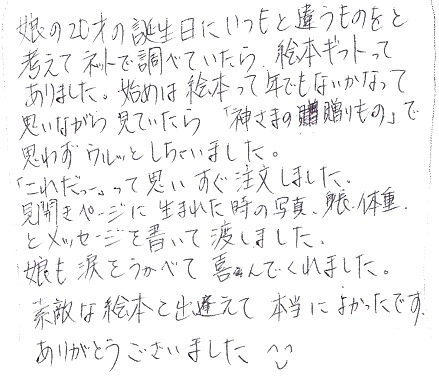 娘の20才の誕生日にいつもと違うものをと
考えてネットで調べていたら、絵本ギフトって
ありました。始めは絵本って年でもないかなって
思いながら見ていたら「神さまの贈りもの」で
思わずウルッとしちゃいました。
「これだっ〜」って思いすぐ注文しました、
見開きページに生まれた時の写真、身長・体重、
とメッセージを書いて渡しました。
娘も涙をうかべて喜んでくれました。
素敵な絵本と出逢えて本当によかったです
ありがとうございました